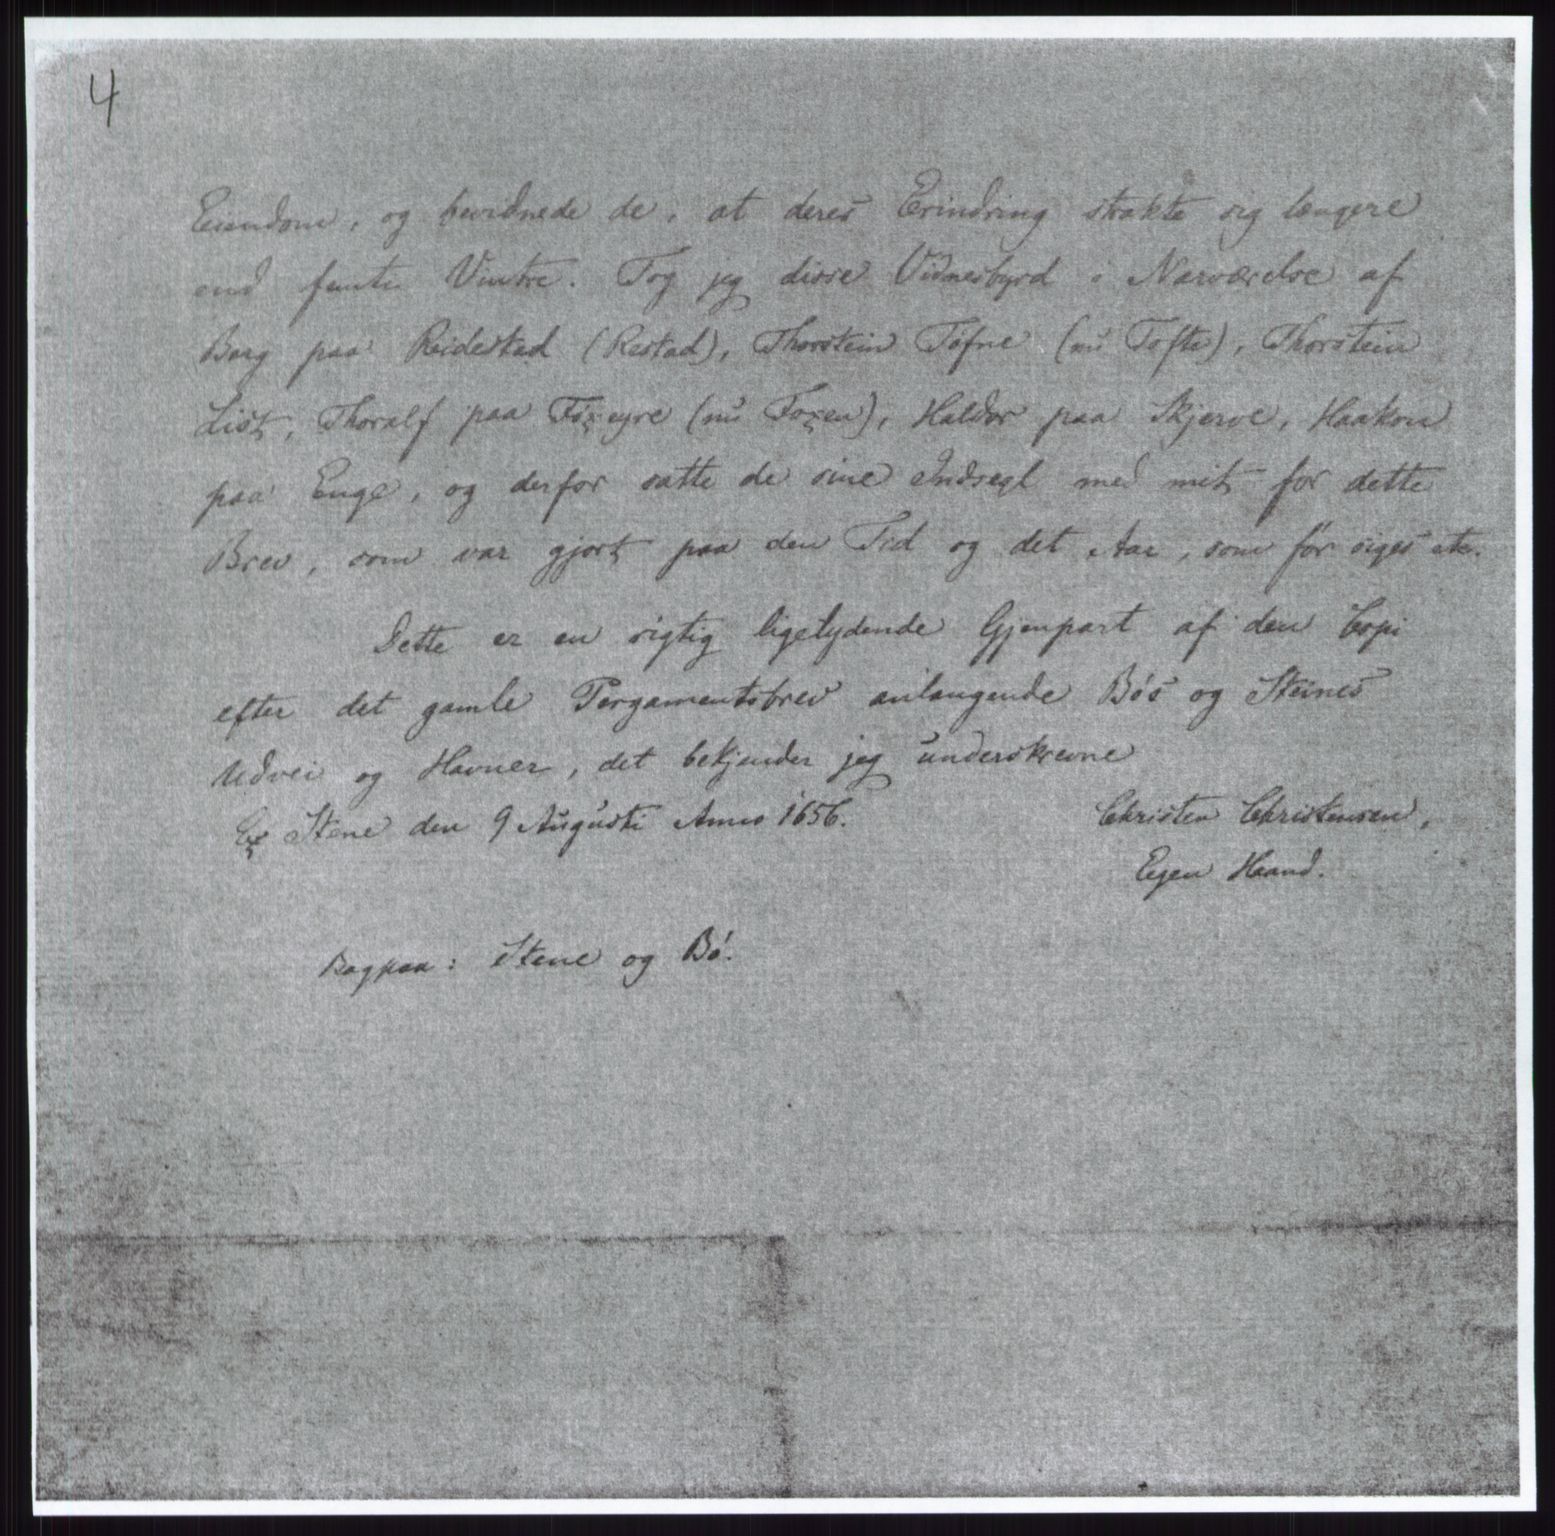 4
Eiendom, og bevidnede de, at deres Erindring strakte sig længere
end femti Vintre. Tog jeg disse Vidnesbyrd i Nærværelse af
Berg paa Reidestad (Restad), Thorstein Tófne (nu Tofte), Thorstein
List, Thoralf paa Fóxeyre (nu Foxen), Haldor paa Skjerve, Haakon
paa Enge, og derfor satte de sine Indsegl med mit for dette
Brev, som var gjort paa den Tid og det Aar, som fór siges etc.
Dette er en rigtig ligelydende Gjenpart af den Copi
efter det gamle Pergamentsbrev anlangende Bós og Steines
Udvei og Havner, det bekjender jeg underskrevne
Ex Stene den 9 Augusti Anno 1656. Christen Christensen,
Egen Haand.
Bagpaa: Stene og Bó.